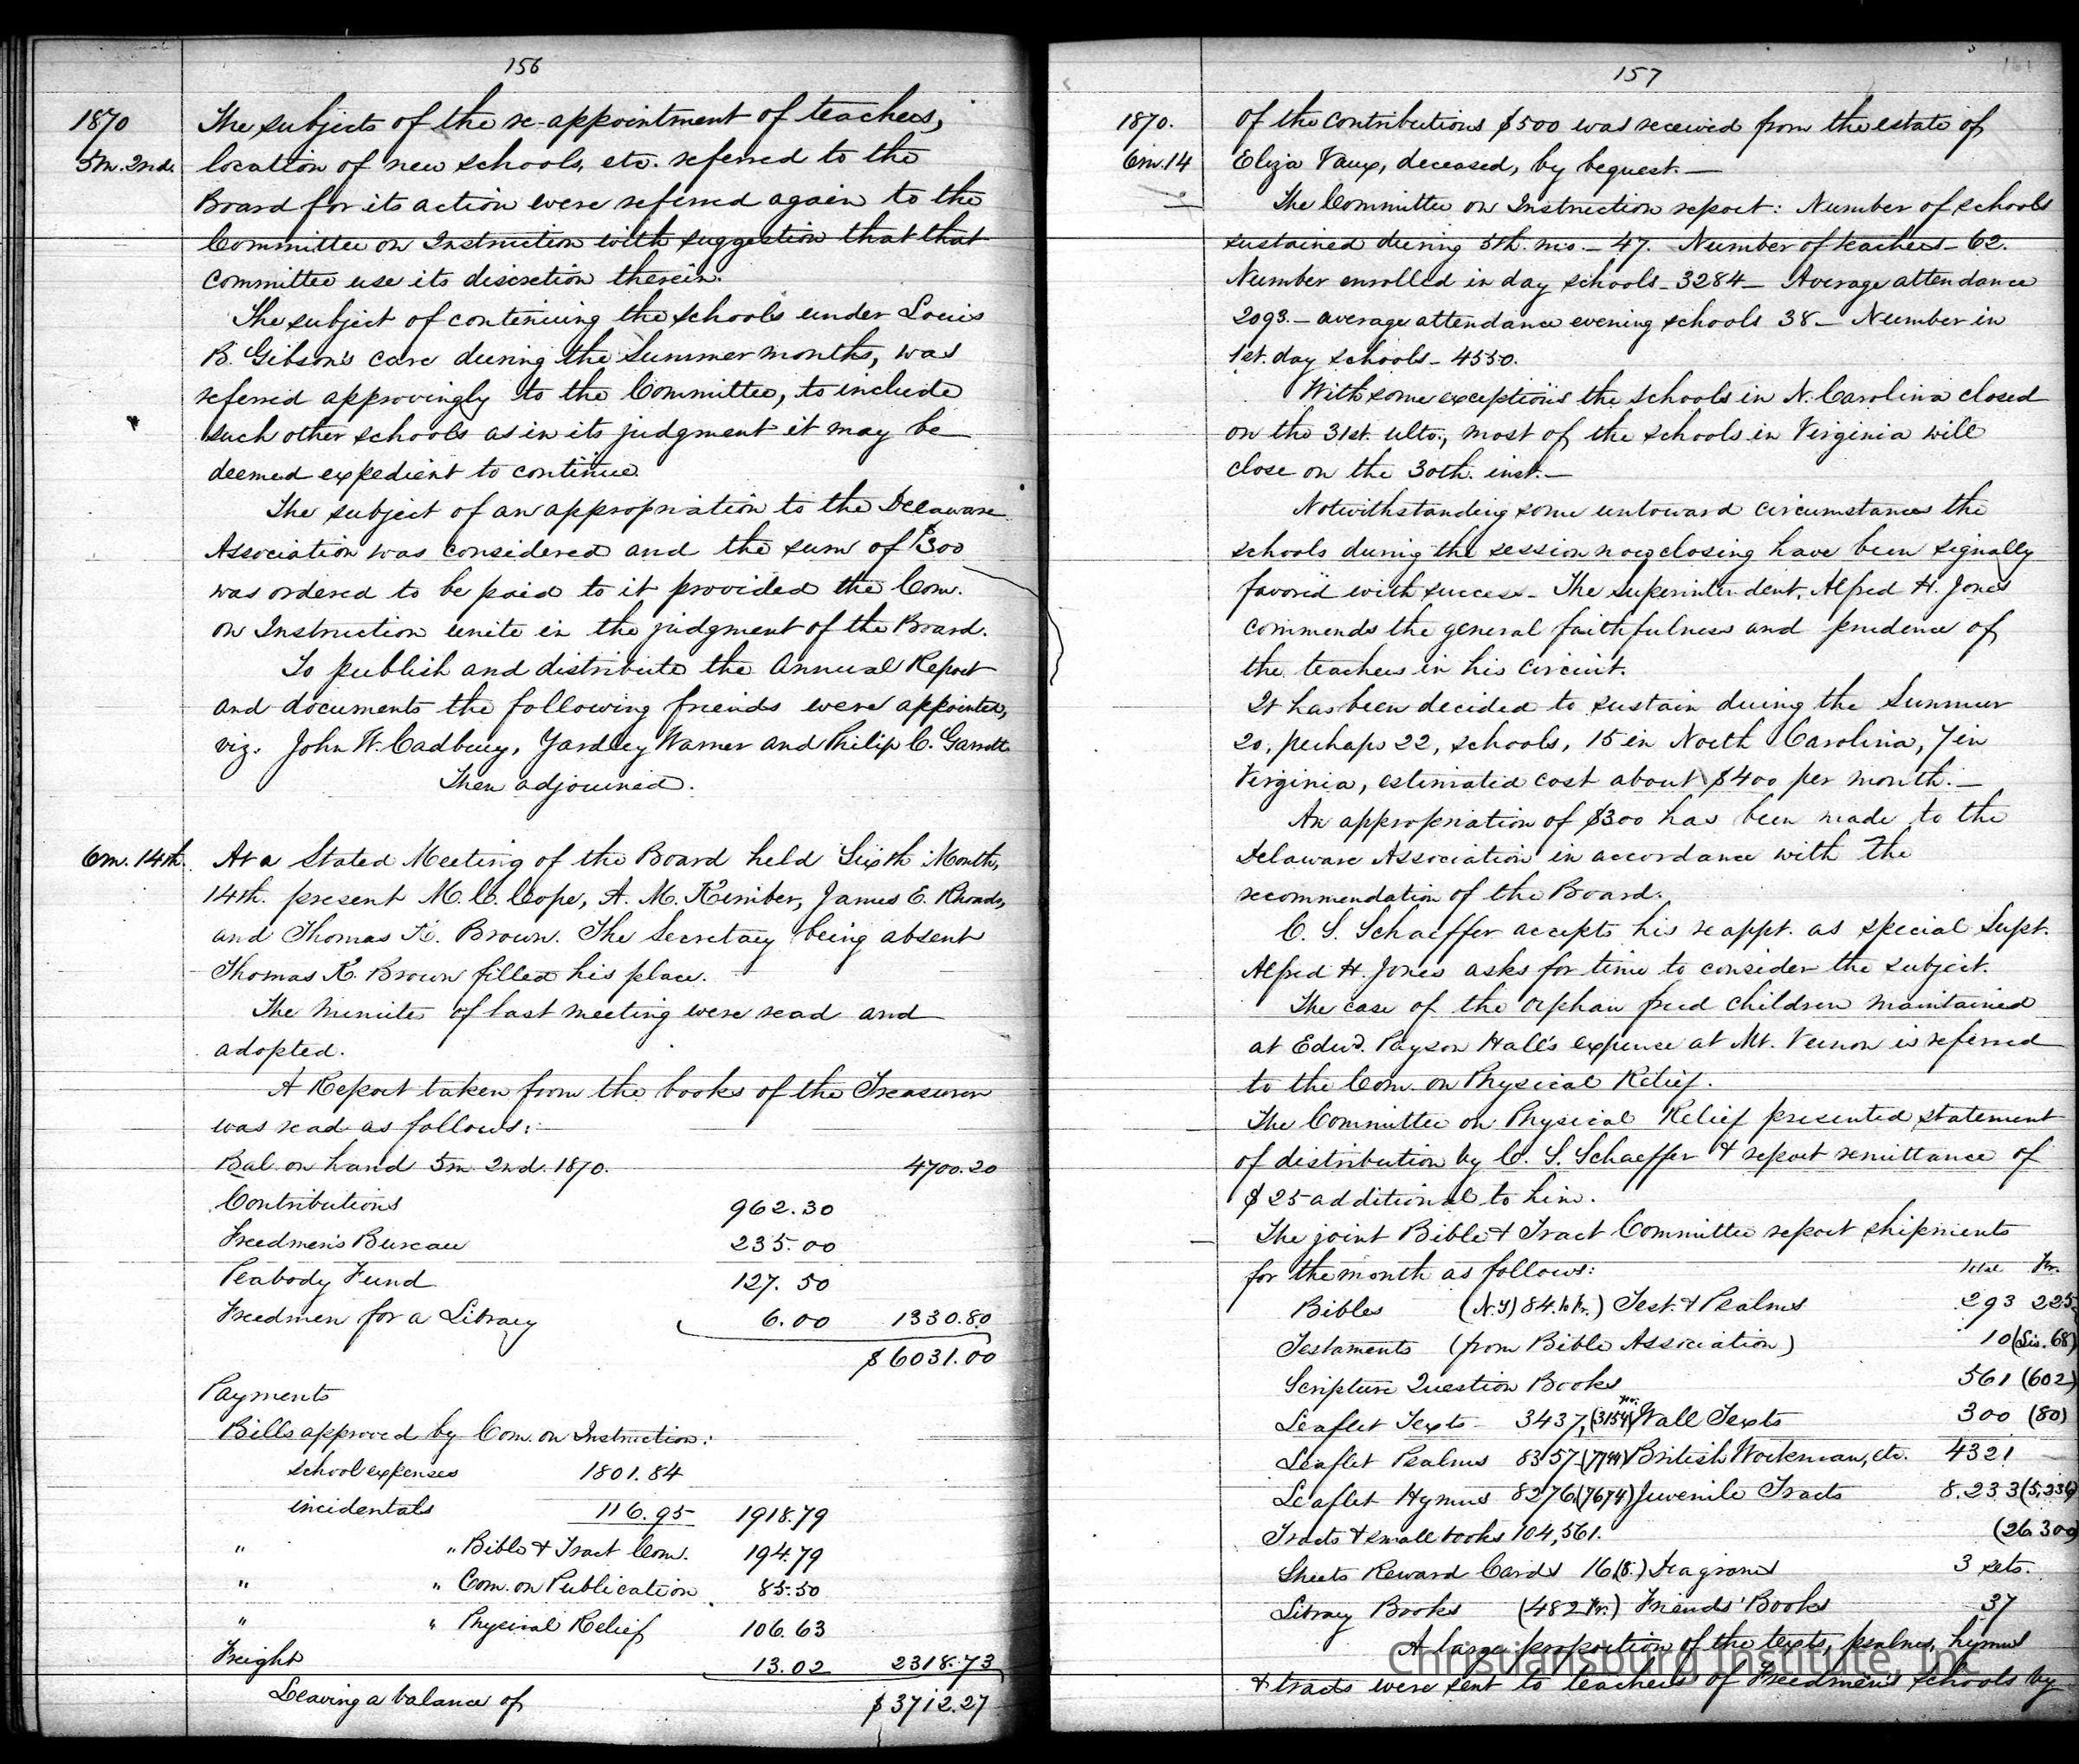 156
1870
The subjects of the re-appointment of teachers,
5m. 2nd.
location of new schools, etc. referred to the
Board for its action were referred again to the
Committee on Instruction with suggestion that that
committee use its discretion therein.
The subject of continuing the schools under Louis
B. Gibson's care during the Summer months, was
referred approvingly to the Committee, to include
such other schools as in its judgment it may be
deemed expedient to continue.
The subject of an appropriation to the Delaware
Association was considered and the sum of $300
was ordered to be paid to it provided the Com.
on Instruction unite in the judgment of the Board.
To publish and distribute the Annual Report
and documents the following friends were appointed,
viz. John W. Cadbury, Yardley Warner and Philip C. Garrett.
Then adjourned.
6m. 14th.
At a Stated Meeting of the Board held Sixth Month,
14th. present M. C. Cope, A. M. Kimber, James E. Rhoads,
and Thomas K. Brown. The Secretary being absent
Thomas K. Brown filled his place.
The minutes of last meeting were read and
adopted.
A Report taken from the books of the Treasurer
was read as follows:
Bal. on hand 5m 2nd. 1870. 4700.20
Contributions 962.30
Freedmen's Bureau 235.00
Peabody Fund 127.50
Freedmen for a Library 6.00 1330.80
$6031.00
Payments
Bills approved by Com. on Instruction:
school expenses 1801.84
incidentals 116.95 1918.79
" " Bible & Tract Com. 194.79
" " Com. on Publication 85.50
" " Physical Relief 106.63
Freight 13.02 2318.73
Leaving a balance of $3712.27
157
1870.
of the contributions $500 was received from the estate of
6m. 14
Eliza Vaux, deceased, by bequest.—
The Committee on Instruction report: Number of schools
sustained during 5th. mo.— 47. Number of teachers— 62.
Number enrolled in day schools— 3284— Average attendance
2093.— average attendance evening schools 38— Number in
1st. day schools— 4550.
With some exceptions the schools in N. Carolina closed
on the 31st. ulto., most of the schools in Virginia will
close on the 30th. inst.—
Notwithstanding some untoward circumstances the
schools during the session now closing have been signally
favored with success— The superintendent, Alfred H. Jones
commends the general faithfulness and prudence of
the teachers in his circuit.
It has been decided to sustain during the Summer
20, perhaps 22, schools, 15 in North Carolina, 7 in
Virginia, estimated cost about $400 per month.—
An appropriation of $300 has been made to the
Delaware Association in accordance with the
recommendation of the Board.
C. S. Schaeffer accepts his reappt. as special Supt.
Alfred H. Jones asks for time to consider the subject.
The case of the orphan freed children maintained
at Edwd. Payson Hall's expense at Mt. Vernon is referred
to the Com. on Physical Relief.
The Committee on Physical Relief presented statement
of distribution by C. S. Schaeffer & report remittance of
$25 additional to him.
The joint Bible & Tract Committee report shipments
for the month as follows: total Fr.
Bibles (N.Y) 84. Fr.) Test. & Psalms 293 225
Testaments (from Bible Association) 10 (Sis. 68)
Scripture Question Books 561 (602)
Leaflet Texts 3437, (3154) Wall Texts 300 (80)
Leaflet Psalms 8357 British Workman, etc. 4321
Leaflet Hymns 8276, (7674) Juvenile Tracts 8.233 (5,236)
Tracts & small books 104,561. (26.300)
Sheets Reward Cards 16 (8.) Diagrams 3 sets.
Library Books (482 Fr.) Friends' Books 37
A large proportion of the texts, psalms, hymns
& tracts were sent to teachers of Freedmen's schools by
Christiansburg Institute, Inc